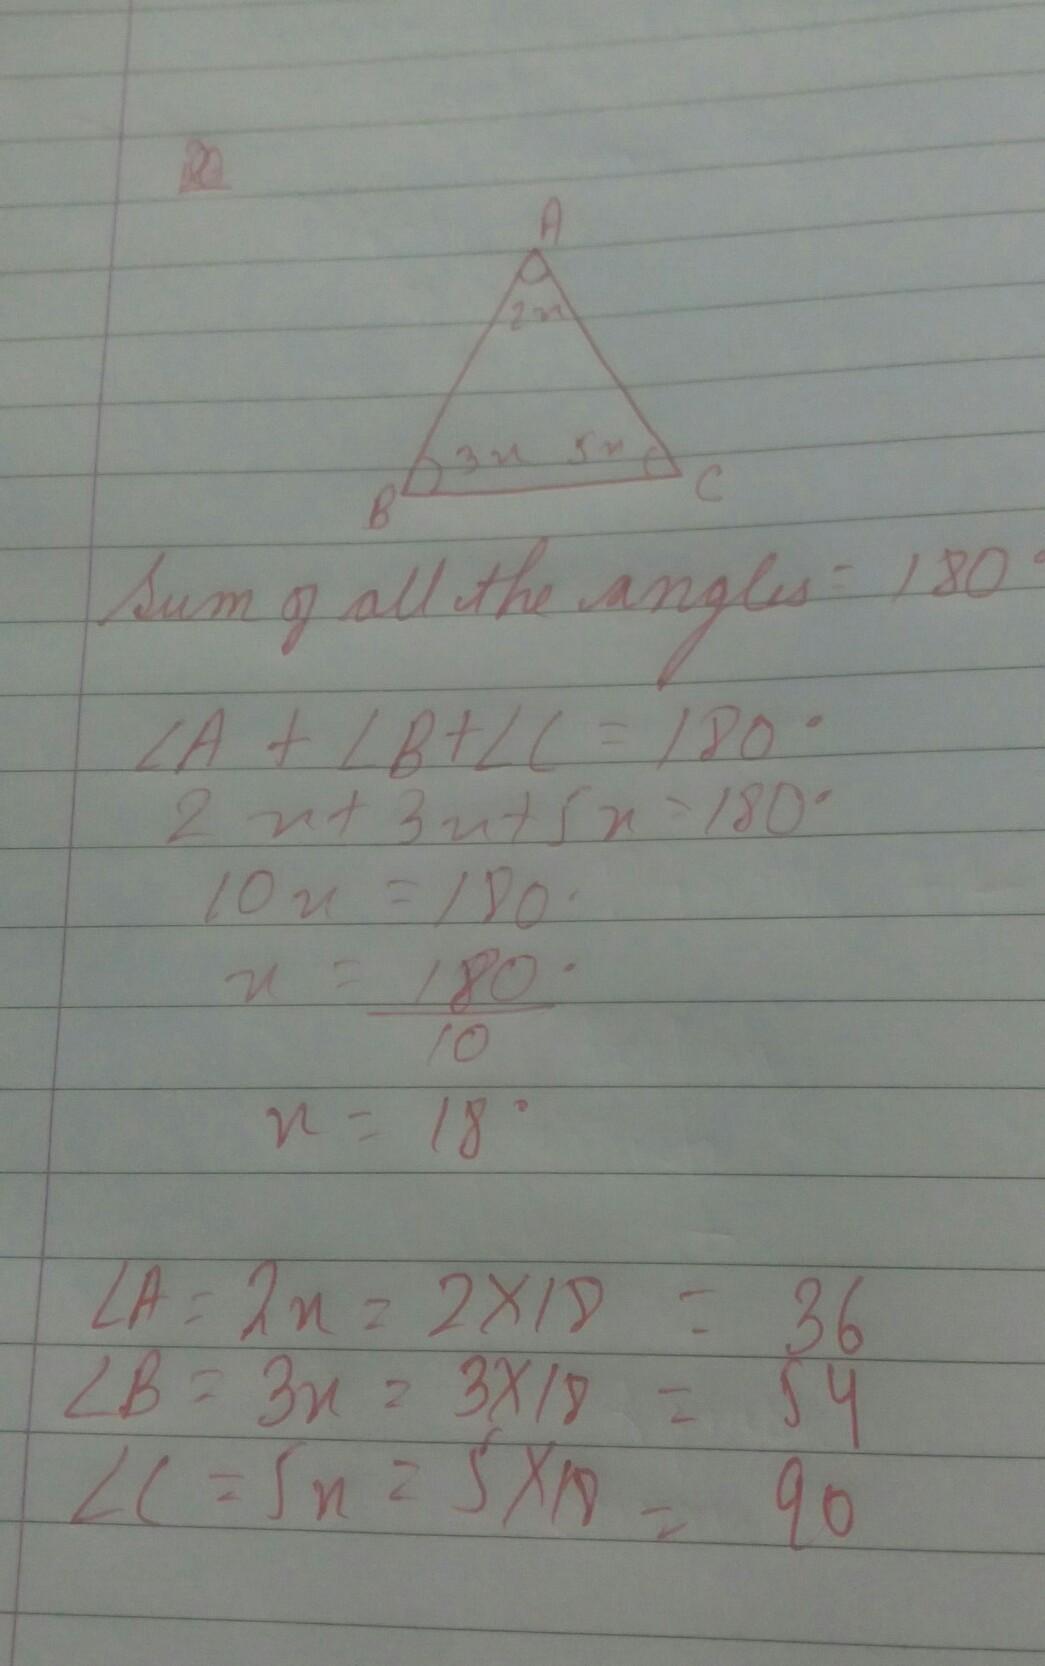 A
2x
3x 5x
B C
Sum of all the angles = 180°
∠A + ∠B + ∠C = 180°
2x + 3x + 5x = 180°
10x = 180°
x = 180°
10
x = 18°
∠A = 2x = 2×18 = 36
∠B = 3x = 3×18 = 54
∠C = 5x = 5×18 = 90